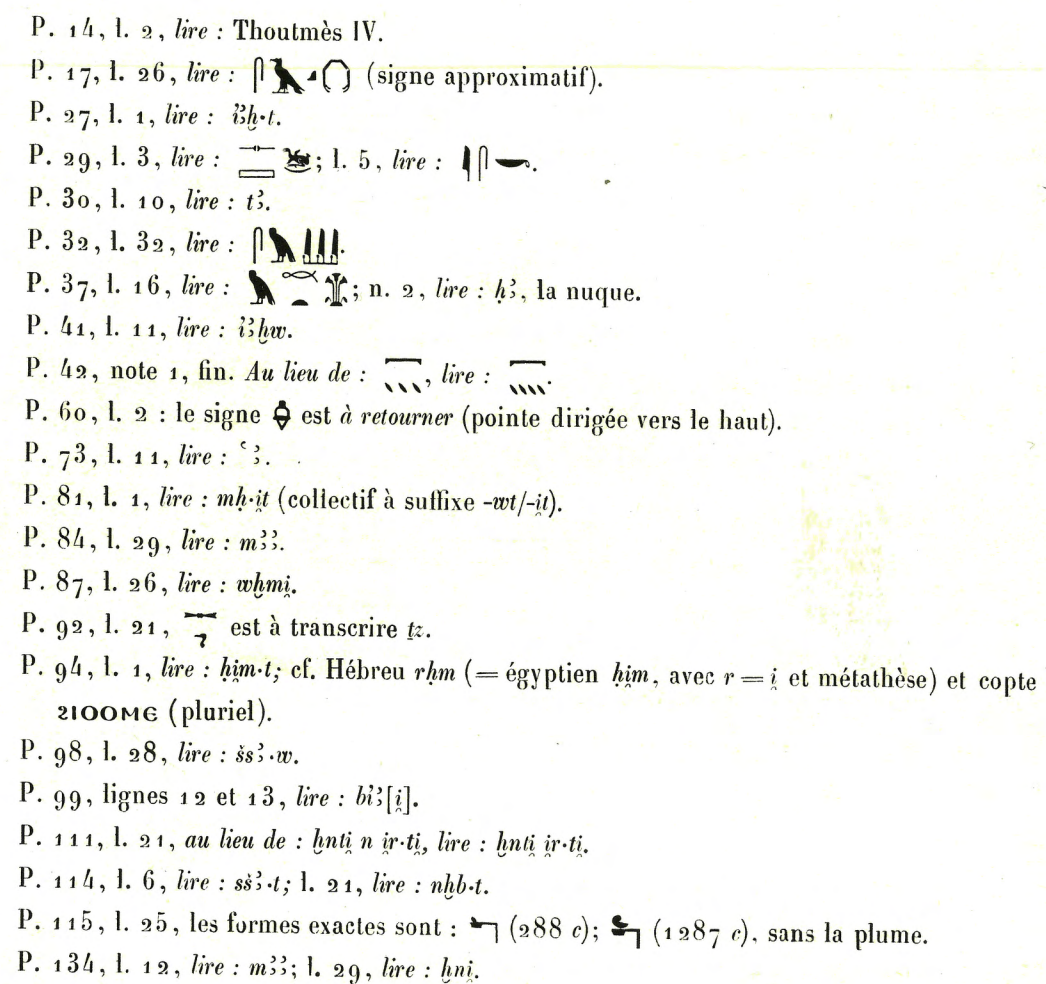 P. 14, l. 2, lire : Thoutmès IV.
P. 17, l. 26, lire : (signe approximatif).
P. 27, l. 1, lire : ꞽꜣḫ·t.
P. 29, l. 3, lire : ; l. 5, lire : .
P. 30, l. 10, lire : tꜣ.
P. 32, l. 32, lire : .
P. 37, l. 16, lire : ; n. 2, lire : ḥꜣ, la nuque.
P. 41, l. 11, lire : ꞽꜣḫw.
P. 42, note 1, fin. Au lieu de : , lire : .
P. 60, l. 2 : le signe est à retourner (pointe dirigée vers le haut).
P. 73, l. 11, lire : ꜥꜣ.
P. 81, l. 1, lire : mḥ·i̯t (collectif à suffixe -wt/-i̯t).
P. 84, l. 29, lire : mꜣꜣ.
P. 87, l. 26, lire : wḫmi̯.
P. 92, l. 21, est à transcrire ṯz.
P. 94, l. 1, lire : ḥi̯m·t; cf. Hébreu rḥm (= égyptien ḥi̯m, avec r = i̯ et métathèse) et copte
ϩⲓⲟⲟⲙⲉ (pluriel).
P. 98, l. 28, lire : šsꜣ·w.
P. 99, lignes 12 et 13, lire : bꞽꜣ[i̯].
P. 111, l. 21, au lieu de : ḫnti̯ n i̯r·ti̯, lire : ḫnti̯ i̯r·ti̯.
P. 114, l. 6, lire : sšꜣ·t; l. 21, lire : nḥb·t.
P. 115, l. 25, les formes exactes sont : (288 c); (1287 c), sans la plume.
P. 134, l. 12, lire : mꜣꜣ; l. 29, lire : ḫni̯.